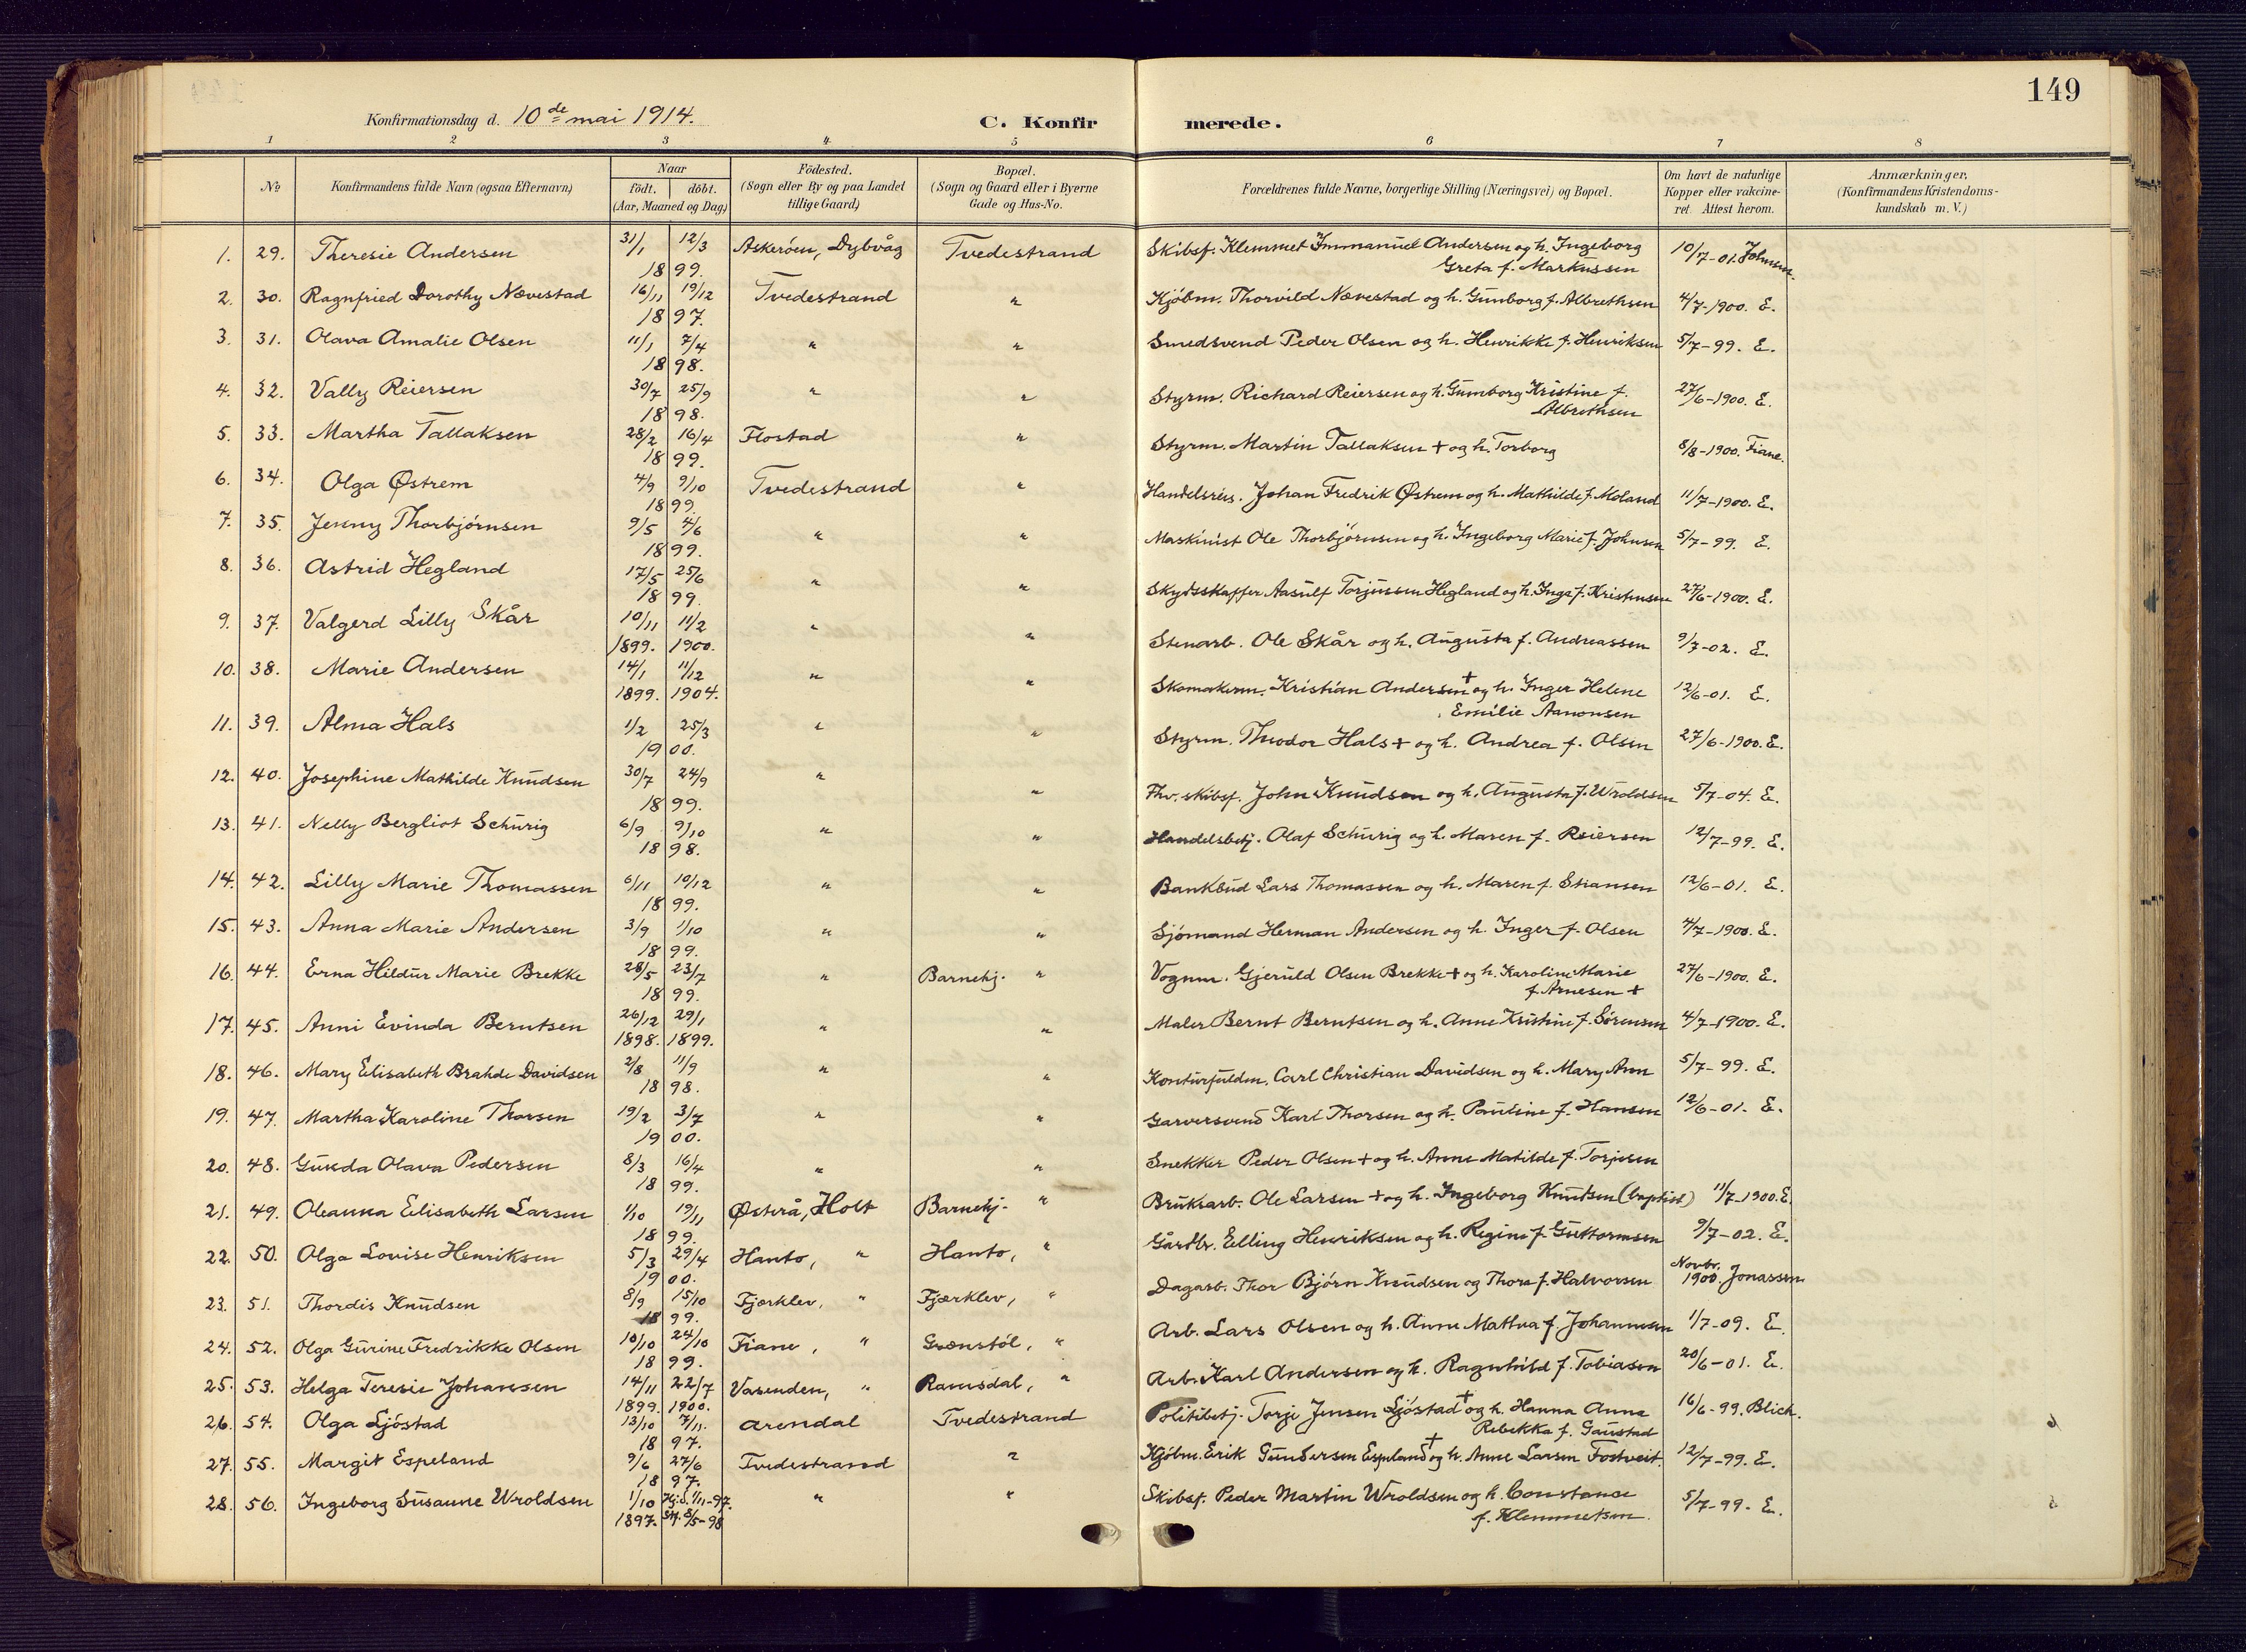 149
Konfirmationsdag d. 10de mai 1914.
C. Konfirmerede.
1 2 3 4 5 6 7 8
No
Konfirmandens fulde Navn (ogsaa Efternavn)
Naar
födt. döbt.
(Aar, Maaned og Dag)
Födested.
(Sogn eller By og paa Landet
tillige Gaard)
Bopæl.
(Sogn og Gaard eller i Byerne
Gade og Hus-No.
Forældrenes fulde Navne, borgerlige Stilling (Næringsvei) og Bopæl.
Om havt de naturlige
Kopper eller vakcine-
ret. Attest herom.
Anmærkninger.
(Konfirmandens Kristendoms-
kundskab m. V.)
1. 29. Theresie Andersen 31/1 12/3 Askeröen, Dybvåg Tvedestrand Skibsf. Klemmet Immanuel Andersen og h. Ingeborg 10/7-01. Johnsen.
1899. Greta f. Markussen
2. 30. Ragnfried Dorothy Nævestad 16/11 19/12 Tvedestrand " Kjöbm. Thorvild Nævestad og h. Gunborg f. Albrethsen 4/7-1900. E.
1897.
3. 31. Olava Amalie Olsen 11/1 7/4 " " Smedsvend Peder Olsen og h. Henrikke f. Henriksen 5/7-99. E.
1898.
4. 32. Vally Reiersen 30/7 25/9 " " Styrm. Richard Reiersen og h. Gunborg Kristine f. 27/6-1900. E.
1898. Albrethsen
5. 33. Martha Tallaksen 28/2 16/4 Flostad " Styrm. Martin Tallaksen + og h. Torborg 8/8-1900. Fiane.
1899.
6. 34. Olga Østrem 4/9 9/10 Tvedestrand " Handelsreis. Johan Fredrik Østrem og h. Mathilde f. Moland 11/7-1900. E.
1899.
7. 35. Jenny Thorbjörnsen 9/5 4/6 " " Maskinist Ole Thorbjörnsen og h. Ingeborg Marie f. Johnsen 5/7-99. E.
1899.
8. 36. Astrid Hegland 17/5 25/6 " " Skydsskaffer Aasulf Torjussen Hegland og h. Inga f. Kristensen 27/6-1900. E.
1899.
9. 37. Valgerd Lilly Skår 10/11 11/2 " " Stenarb. Ole Skår og h. Augusta f. Andreassen 9/7-02. E.
1899. 1900.
10. 38. Marie Andersen 14/1 11/12 " " Skomakerm. Kristian Andersen + og h. Inger Helene 12/6-01. E.
1899. 1904. Emilie Aanonsen
11. 39. Alma Hals 1/2 25/3 " " Styrm. Theodor Hals + og h. Andrea f. Olsen 27/6-1900. E.
1900.
12. 40. Josephine Mathilde Knudsen 30/7 24/9 " " Fhv. skibsf. John Knudsen og h. Augusta f. Wroldsen 5/7-04. E.
1899.
13. 41. Nelly Bergliot Schurig 6/9 9/10 " " Handelsbetj. Olaf Schurig og h. Maren f. Reiersen 12/7-99. E.
1898.
14. 42. Lilly Marie Thomassen 6/11 10/12 " " Bankbud Lars Thomassen og h. Maren f. Stiansen 12/6-01. E.
1899.
15. 43. Anna Marie Andersen 3/9 1/10 " " Sjömand Herman Andersen og h. Inger f. Olsen 4/7-1900. E.
1899.
16. 44. Erna Hildur Marie Brekke 28/5 23/7 " Barnehj. " Vognm. Gjeruld Olsen Brekke + og h. Karoline Marie 27/6-1900. E.
1899. f. Arnesen +
17. 45. Anni Evinda Berntsen 26/12 29/1 " " Maler Bernt Berntsen og h. Anne Kristine f. Sörensen 4/7-1900. E.
1898. 1899.
18. 46. Mary Elisabeth Brahde Davidsen 2/8 11/9 " " Konturfuldm. Carl Christian Davidsen og h. Mary Ann 5/7-99. E.
1898.
19. 47. Martha Karoline Thorsen 19/2 3/7 " " Garversvend Karl Thorsen og h. Pauline f. Hansen 12/6-01. E.
1900.
20. 48. Gusda Olava Pedersen 8/3 16/4 " " Snekker Peder Olsen + og h. Anne Matilde f. Torjesen
1899.
21. 49. Oleanna Elisabeth Larsen 1/10 19/11 Østerå, Holt Barnehj. " Bruksarb. Ole Larsen + og h. Ingeborg Knutsen (baptist) 11/7-1900. E.
1899.
22. 50. Olga Lovise Henriksen 5/3 29/4 Hanto, " Hanto, " Gårdbr. Elling Henriksen og h. Regine f. Guttormsen 9/7-02. E.
1900.
23. 51. Thordis Knudsen 8/9 15/10 Fjærklev, " Fjærklev, " Dagarb. Thor Björn Knudsen og Thora f. Halvorsen Novbr. 1900. Jonassen
1899.
24. 52. Olga Gurine Fredrikke Olsen 10/10 24/10 Fiane, " Grænstöl, " Arb. Lars Olsen og h. Anne Mathea f. Johannesen 1/7-09. E.
1899.
25. 53. Helga Teresie Johansen 14/11 22/7 Vasenden, " Ramsdal, " Arb. Karl Andersen og h. Ragnhild f. Tobiasen 20/6-01. E.
1899. 1900.
26. 54. Olga Sjöstad 13/10 7/11. Arendal Tvedestrand Politibetj. Torje Jensen Sjöstad + og h. Hanna Anna 16/6-99. Blich.
1897. Rebekka f. Gaustad
27. 55. Margit Espeland 9/6 27/6 Tvedestrand " Kjöbm. Erik Gundersen Espeland + og h. Anne Larsen Fostveit. 12/7-99. E.
1897.
28. 56. Ingeborg Susanne Wroldsen 1/10 Hj.d. 1/11-97. " " Skibsf. Peder Martin Wroldsen og h. Constance 5/7-99. E.
1897. 8/5-98 f. Klemmetsen.